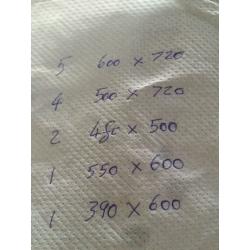 5 600 x 720
4 500 x 720
2 450 x 500
1 550 x 600
1 390 x 600